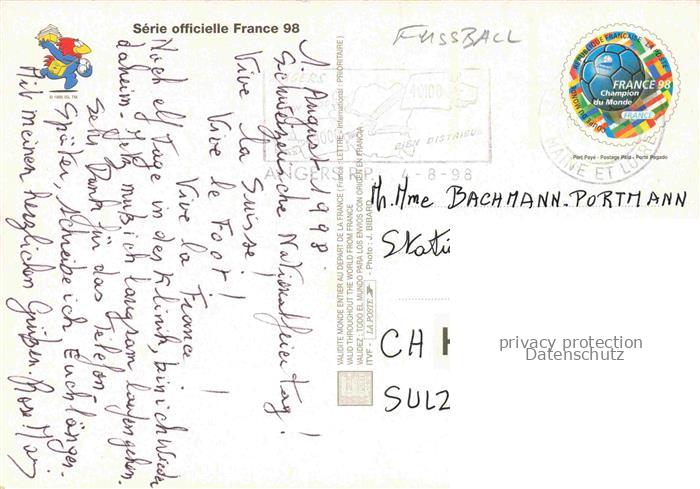 Série officielle France 98
© 1995 ISL TM
FUSSBALL
1. August 1998.
Schweizerische Nationalfeiertag!
Vive la Suisse!
Vive le Foot!
Vive la France!
Noch elf Tage in der Klinik, bin ich wieder
daheim. Jetz muß ich langsam laufen gehen.
Sehr Dank für das Telefon
Später, schreibe ich, Euch länger.
Mit meinen herzlichen Grüßen. Rose. May
VALIDITE MONDE ENTIER AU DEPART DE LA FRANCE ( France - LETTRE - International : PRIORITAIRE )
VALID THROUGHOUT THE WORLD FROM FRANCE
VALIDEZ : TODO EL MUNDO PARA LOS ENVIOS CON ORIGEN EN FRANCIA
ITVF - LA POSTE - Photo : J. BIBARD
ANGERS
49100
BIEN DISTRIBUE
ANGERS R.P. 4-8-98
MAINE ET LOIRE
REPUBLIQUE FRANÇAISE LA POSTE
FRANCE 98
Champion
du Monde
FRANCE
COUPE DU MONDE
Port Payé - Postage Paid - Porte Pagado
M. Mme BACHMANN-PORTMANN
Stati
CH
SULZ
privacy protection
Datenschutz